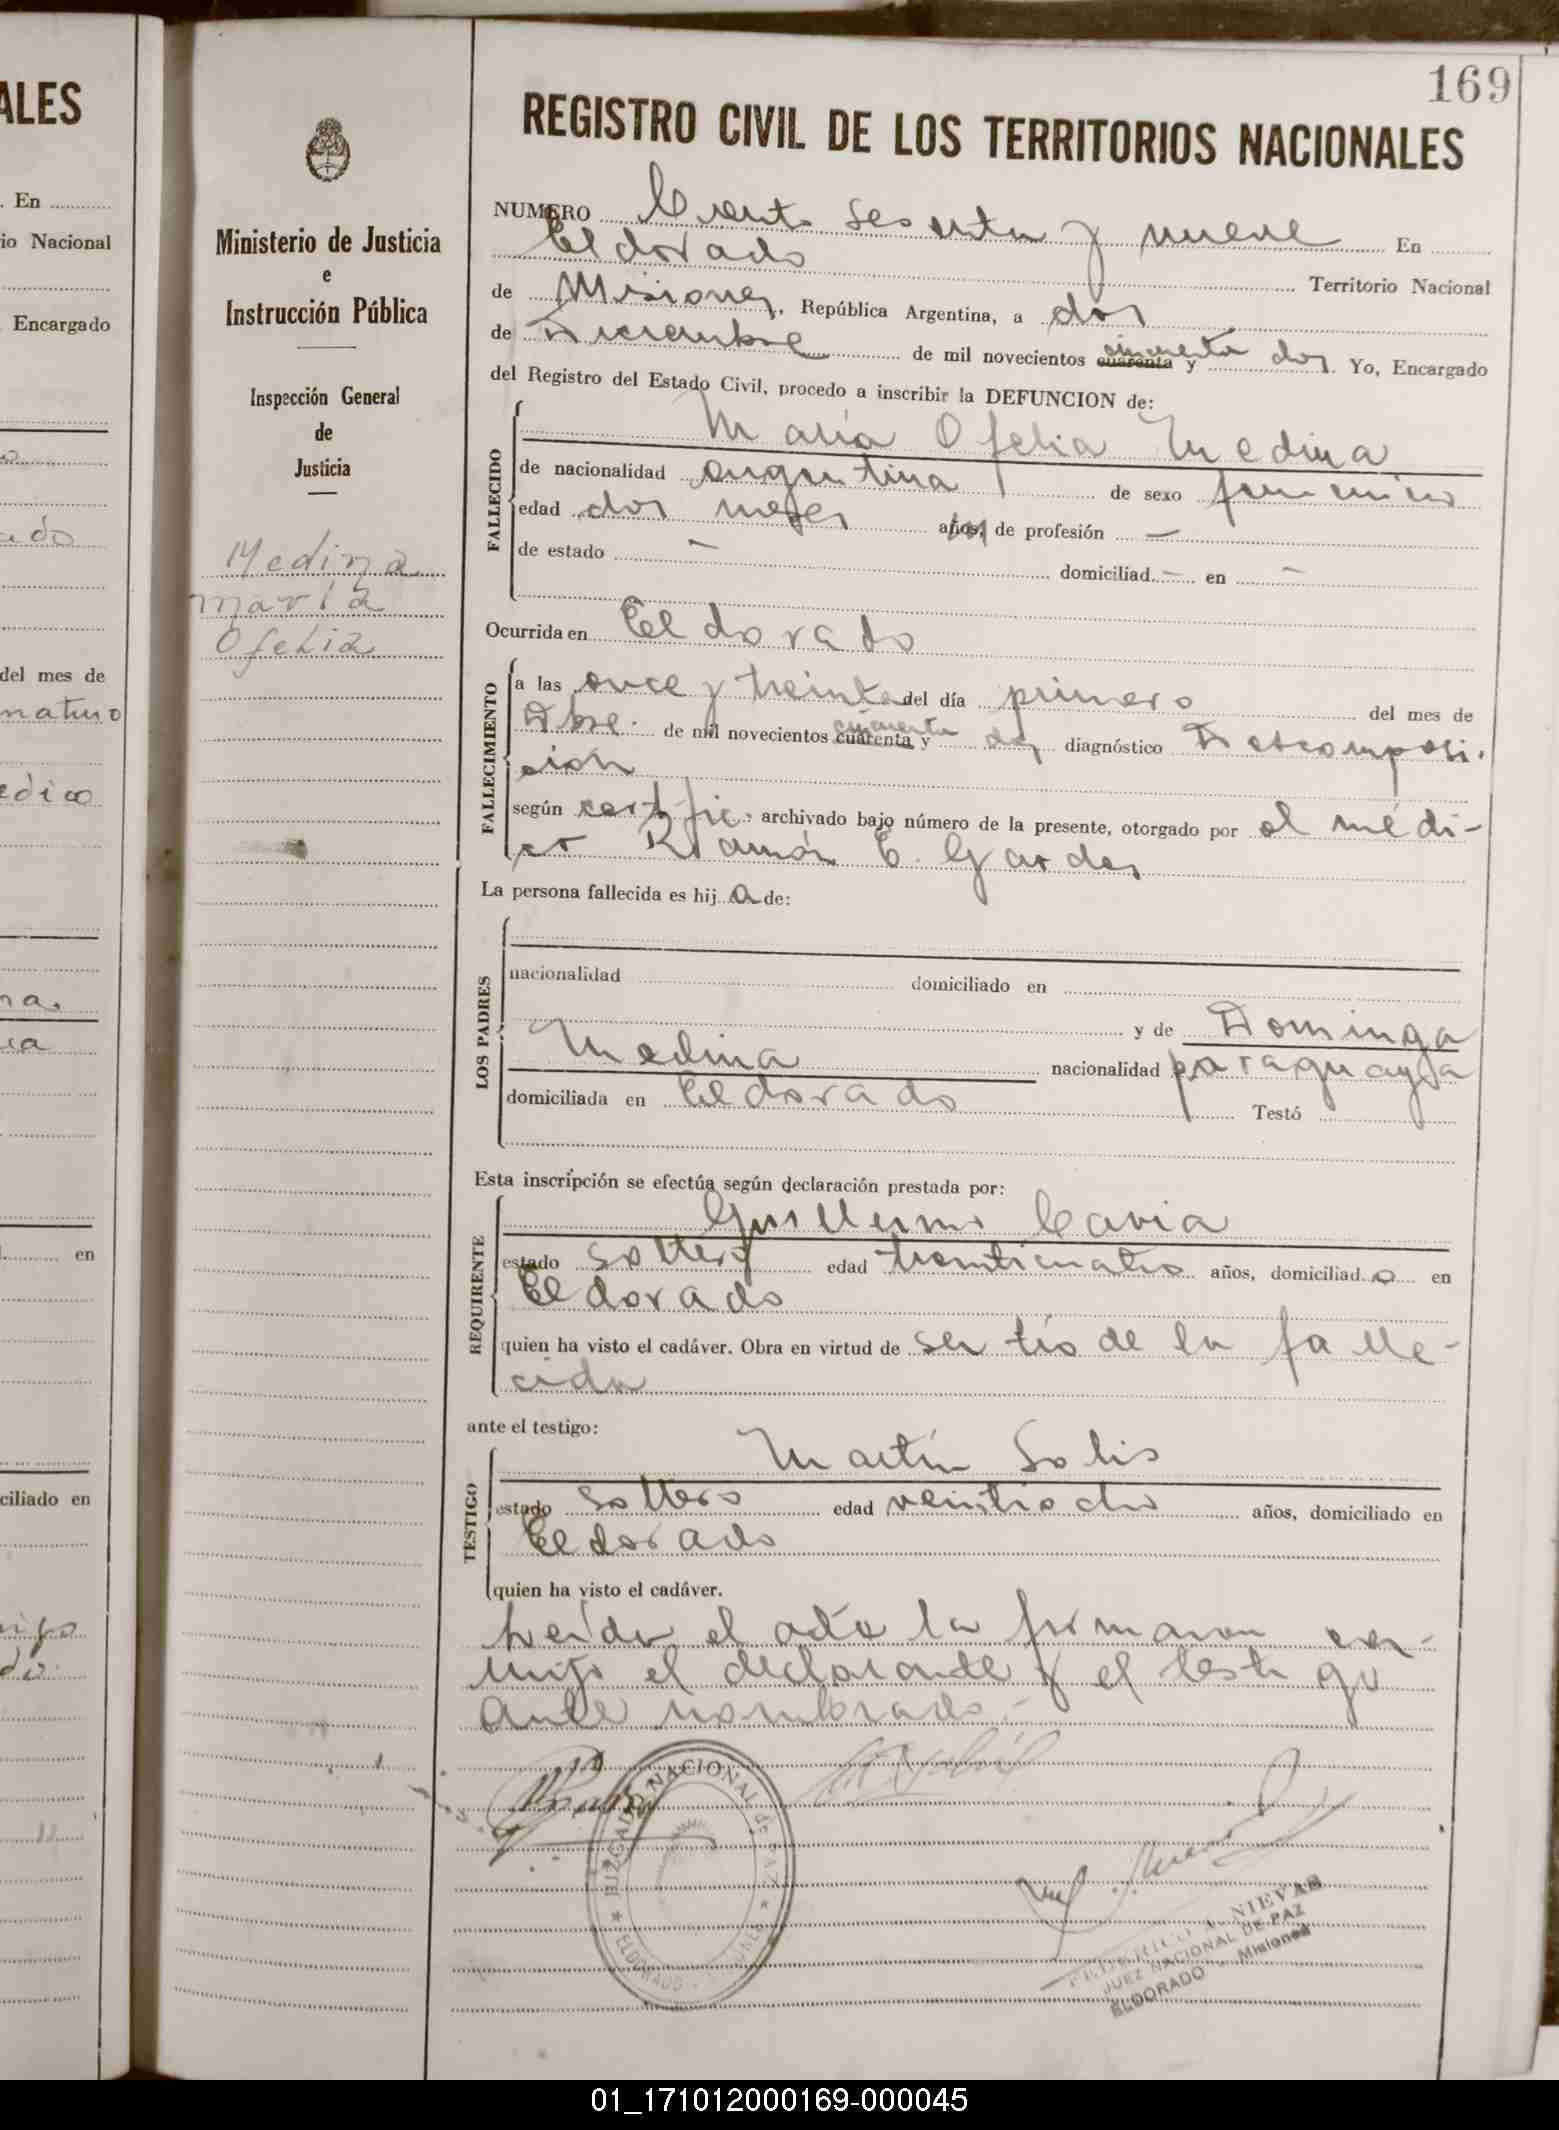 169
REGISTRO CIVIL DE LOS TERRITORIOS NACIONALES
Ministerio de Justicia
e
Instrucción Pública
Inspección General
de
Justicia
Medina
María
Ofelia
NUMERO Ciento sesenta y nueve En
Eldorado Territorio Nacional
de Misiones, República Argentina, a dos
de Diciembre de mil novecientos cuarenta cincuenta y dos. Yo, Encargado
del Registro del Estado Civil, procedo a inscribir la DEFUNCION de:
FALLECIDO
María Ofelia Medina
de nacionalidad argentina de sexo femenino
edad dos meses años, de profesión —
de estado — domiciliad — en —
Ocurrida en Eldorado
FALLECIMIENTO
a las once y treinta del día primero del mes de
Dbre. de mil novecientos cuarenta cincuenta y dos diagnóstico Descomposi-
ción
según certific. archivado bajo número de la presente, otorgado por el médi-
co Ramón E. Gardes
La persona fallecida es hij a de:
LOS PADRES
nacionalidad domiciliado en
y de Dominga
Medina nacionalidad paraguaya
domiciliada en Eldorado Testó
Esta inscripción se efectúa según declaración prestada por:
REQUIRENTE
Guillermo Cavia
estado soltero edad treinticuatro años, domiciliad o en
Eldorado
quien ha visto el cadáver. Obra en virtud de ser tío de la falle-
cida
ante el testigo:
TESTIGO
Martín Solis
estado soltero edad veintiocho años, domiciliado en
Eldorado
quien ha visto el cadáver.
Leída el acta la firmaron con-
migo el declarante y el testigo
ante nombrado.-
JUZGADO NACIONAL de PAZ
★ ELDORADO - MISIONES ★
FEDERICO A. NIEVAS
JUEZ NACIONAL DE PAZ
ELDORADO - Misiones
ALES
. En
io Nacional
Encargado
del mes de
en
ciliado en
01_171012000169-000045